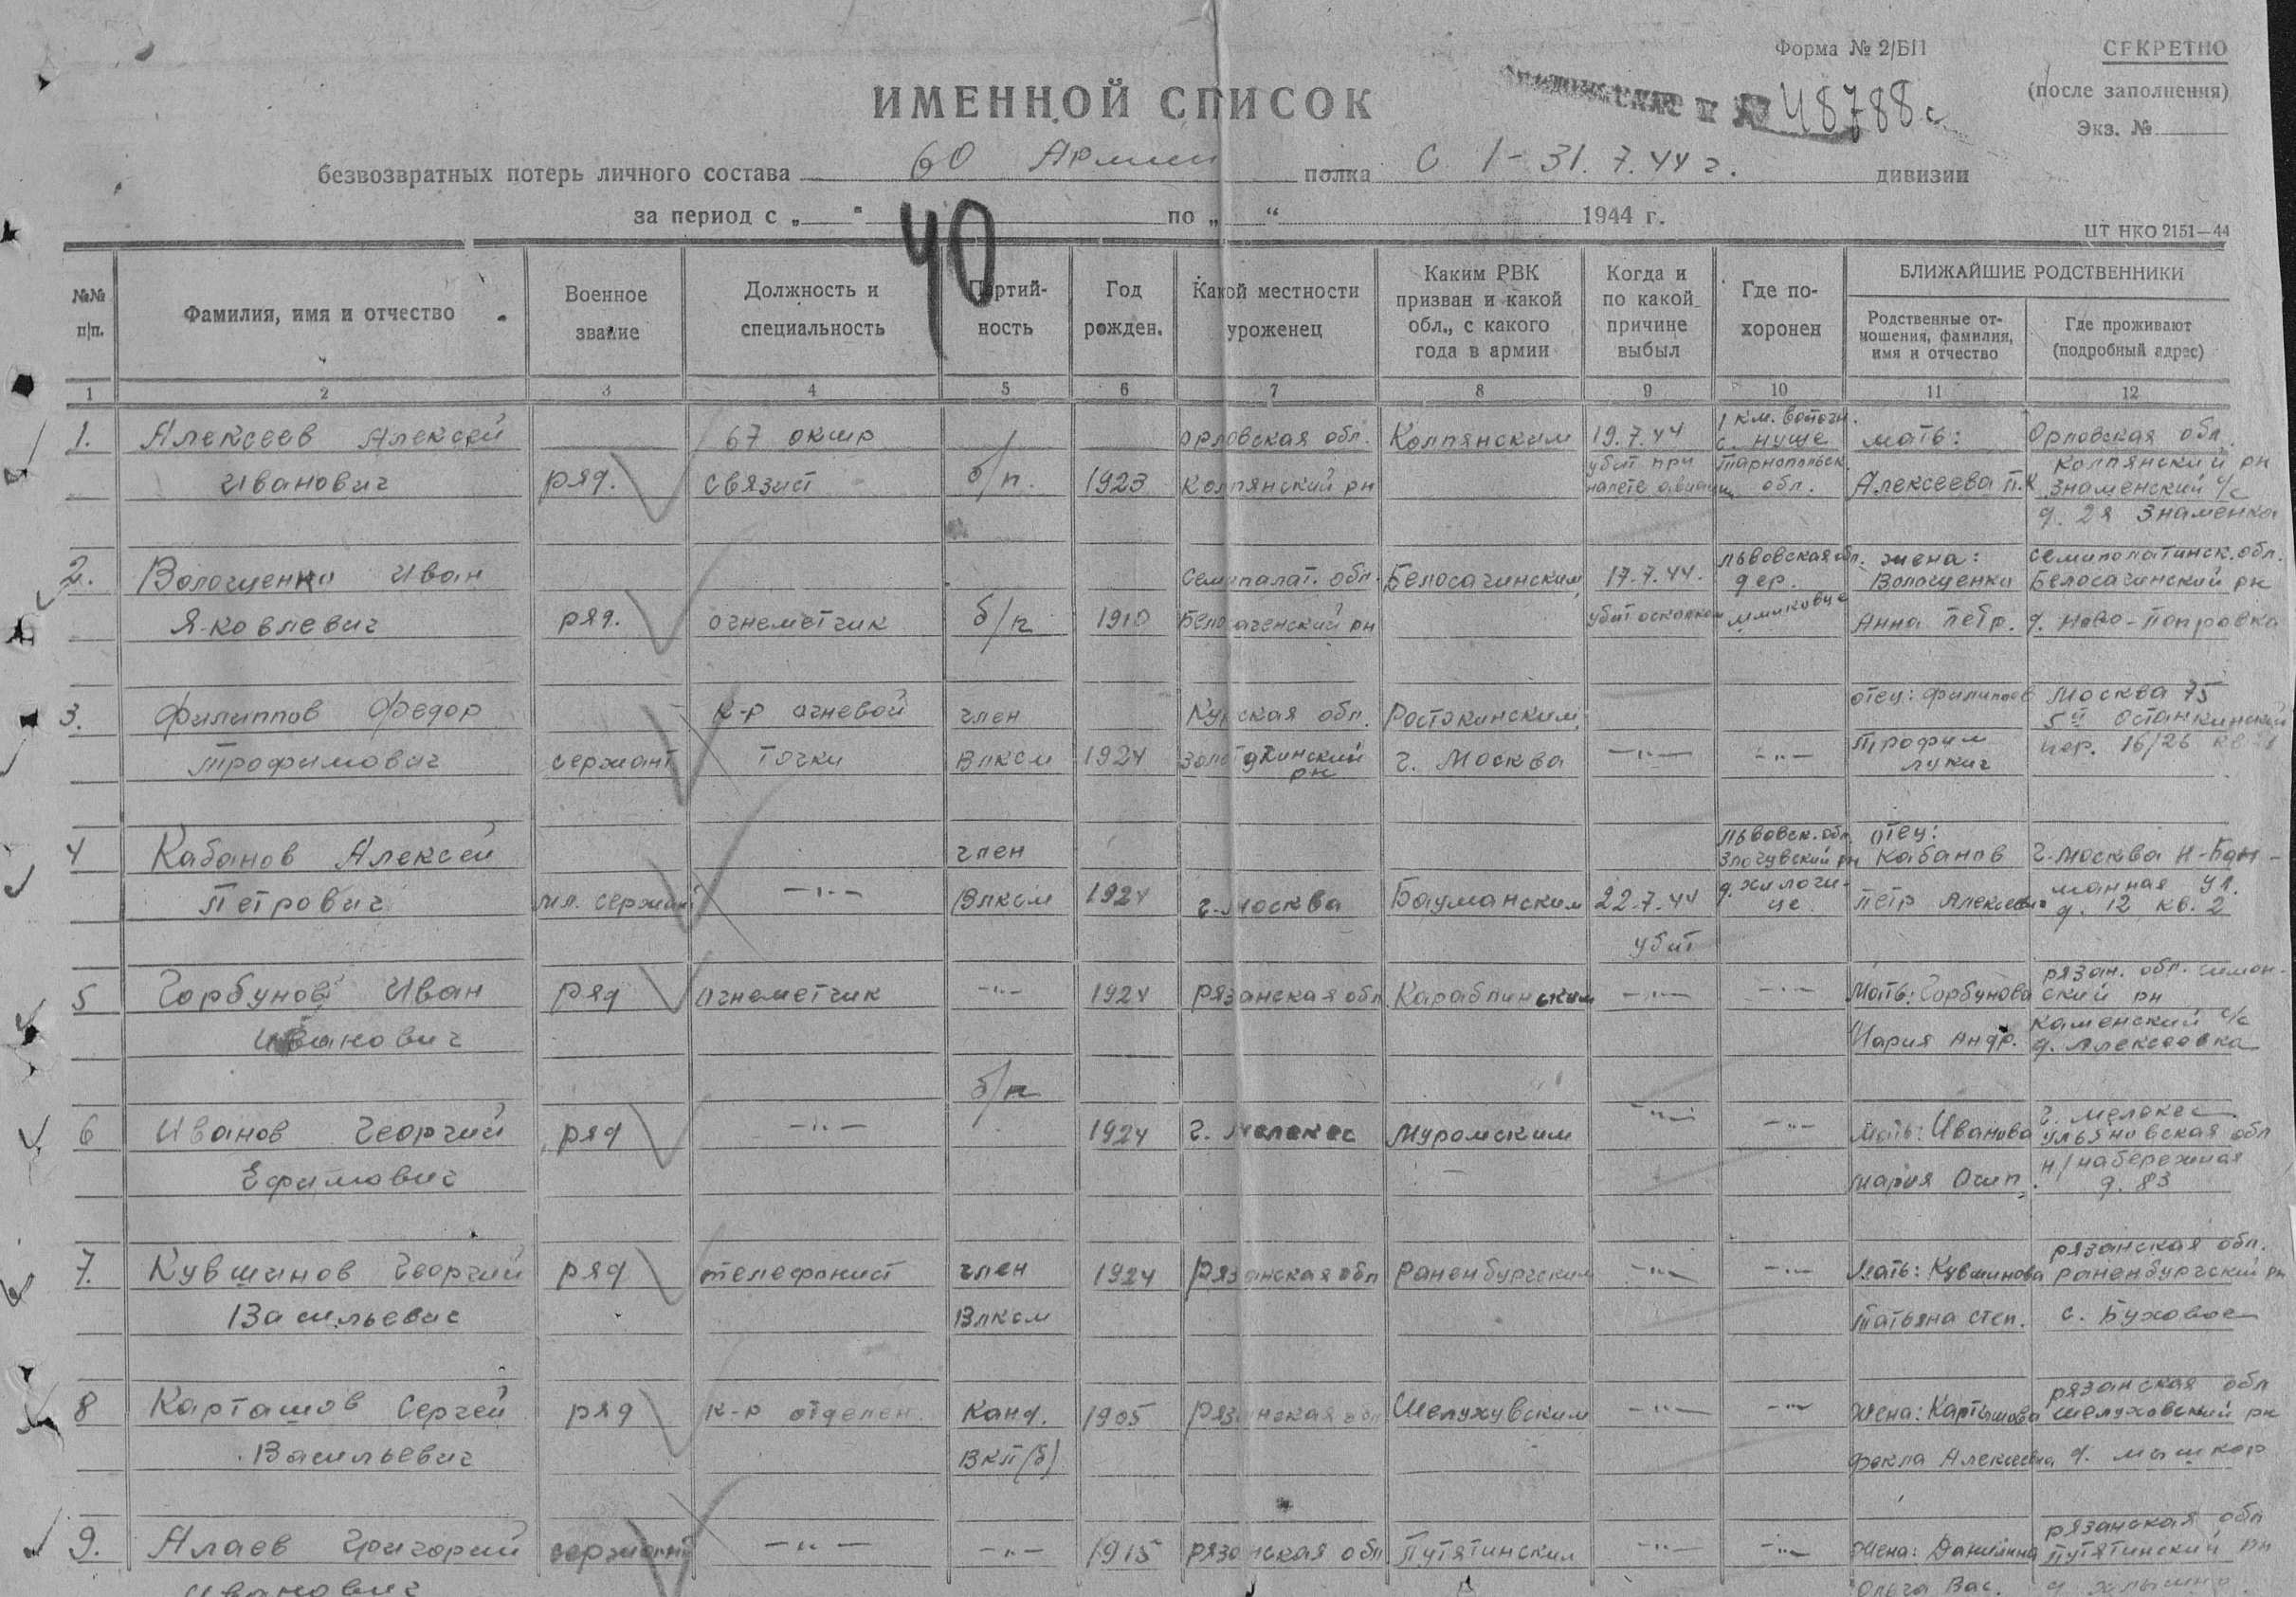 Форма № 2/БП
СЕКРЕТНО
(после заполнения)
Экз. №
48788с
ИМЕННОЙ СПИСОК
безвозвратных потерь личного состава 60 Армии полка с 1-31.7.44 г. дивизии
за период с „ “ по „ “ 1944 г.
40
ЦТ НКО 2151—44
№№ п/п. Фамилия, имя и отчество Военное звание Должность и специальность Партий-ность Год рожден. Какой местности уроженец Каким РВК призван и какой обл., с какого года в армии Когда и по какой причине выбыл Где по-хоронен БЛИЖАЙШИЕ РОДСТВЕННИКИ
Родственные от-ношения, фамилия, имя и отчество Где проживают (подробный адрес)
1 2 3 4 5 6 7 8 9 10 11 12
1. Алексеев Алексей 67 окшр Орловская обл. Колпянским 19.7.44 1 км. восточн. с. Нуще мать: Орловская обл.
Иванович ряд. связист б/п. 1923 Колпянский рн убит при налете авиации Тарнопольск. обл. Алексеева П.К Колпянский рн Знаменский с/с
д. 2я Знаменка
2. Волощенко Иван Семипалат. обл. Белосачинским 17.7.44. Львовская обл. дер. жена: Волощенко Семипалатинск. обл. Белосачинский рн
Яковлевич ряд. огнеметчик б/п 1910 рн убит осколком Анна Петр. д. Ново-Покровка
3. Филиппов Федор к-р огневой член Курская обл. Ростокинским отец: Филиппов Москва 75 5й Останкинский
Трофимович сержант точки ВЛКСМ 1924 рн г. Москва -"- -"- Трофим Лукич пер. 16/26
4 Кабанов Алексей член Львовск. обл. Злочувский рн отец: Кабанов г. Москва
Петрович мл. сержант -"- ВЛКСМ 1924 г. Москва Бауманским 22.7.44 д. Петр Алексеевич ул. д. 12 кв. 2
убит
5 Горбунов Иван ряд огнеметчик -"- 1924 Рязанская обл. Караблинским -"- -"- Мать: Горбунова Рязан. обл. Симон-ский рн
Иванович Мария Андр. Каменский с/с д. Алексеевка
б/п
6 Иванов Георгий ряд -"- 1924 г. Мелекес Муромским -"- -"- Мать: Иванова г. Мелекес Ульяновская обл
Ефимович Мария Осип. н/набережная д. 83
7. Кувшинов Георгий ряд телефонист член 1924 Рязанская обл Раненбургским -"- -"- Мать: Кувшинова Рязанская обл. Раненбургский рн
Васильевич ВЛКСМ Татьяна Степ. с. Буховое
8 Карташов Сергей ряд к-р отделен. Канд. 1905 Рязанская обл Шелухувским -"- -"- Жена: Карташова Рязанская обл Шелуховский рн
Васильевич ВКП(б) Фекла Алексеевна д. Мышкор
9. Алаев Григорий сержант -"- -"- 1915 Рязанская обл Путятинским -"- -"- Жена: Данилина Рязанская обл Путятинский рн
Иванович Ольга Вас. д.